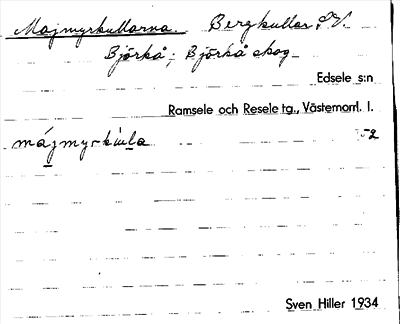 Majmyrkullarna. Bergkullar SV.
Björkå; Björkå skog
Edsele s:n
Ramsele och Resele tg., Västernorrl. l.
májmyrkiula
Sven Hiller 1934